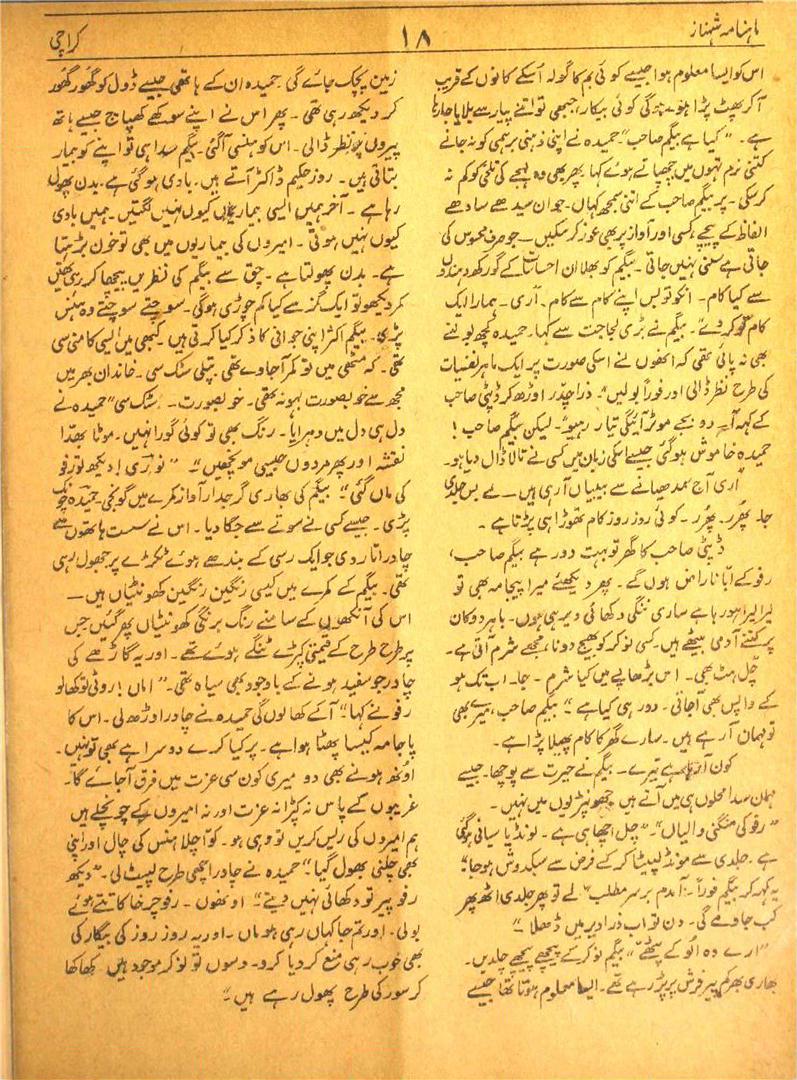 ماہنامہ شہناز
۱۸
کراچی
اس کو ایسا معلوم ہوا جیسے کوئی بم کا گولہ اُسکے کانوں کے قریب
آکر پھٹ پڑا ہو۔ ہوگی کوئی بیکار، جبھی تو اتنے پیار سے بلایا جا رہا
ہے۔ "کیا ہے بیگم صاحب" حمیدہ نے اپنی ذہنی برہمی کو نہ جانے
کتنی نرم تہوں میں چھپاتے ہوئے کہا، پھر بھی وہ لہجے کی تلخی کو کم نہ
کرسکی۔ پر بیگم صاحب کے اتنی سمجھ کہاں۔ جو ان سیدھے سادھے
الفاظ کے پیچھے کسی اور آواز پر بھی غور کرسکیں۔ جو صرف محسوس کی
جاتی ہے سُنی نہیں جاتی۔ بیگم کو بھلا ان احساسات کے گورکھ دھندوں
سے کیا کام۔ انکو تو بس اپنے کام سے کام۔ "اری۔ ہمارا ایک
کام تو کردے"۔ بیگم نے بڑی لجاجت سے کہا۔ حمیدہ کچھ بولنے
بھی نہ پائی تھی کہ انھوں نے اسکی صورت پر ایک ماہر نفسیات
کی طرح نظر ڈالی اور فوراً بولیں "۔ ذرا چدّر اوڑھ کر ڈپٹی صاحب
کے کہہ آ۔ دو بجے موٹر آئیگی تیار رہیو"۔ لیکن بیگم صاحب!
حمیدہ خاموش ہوگئی جیسے اسکی زبان میں کسی نے تالا ڈال دیا ہو۔
"اری آج سمدھیانے سے بیبیاں آرہی ہیں۔ لے بس جلدی
جا۔ پُھرر۔ پُھرر۔ کوئی روز روز کام تھوڑا ہی پڑتا ہے۔
ڈپٹی صاحب کا گھر تو بہت دور ہے بیگم صاحب،
رفو کے ابّا ناراض ہوں گے۔ پھر دیکھئے میرا پیجامہ بھی تو
لیرا لیرا ہورہا ہے ساری ننگی دکھائی دیرہی ہوں۔ باہر دوکان
پر کتنے آدمی بیٹھے ہیں۔ کسی نوکر کو بھیج دونا، مجھے شرم آتی ہے۔
چل ہٹ بھی۔ اس بڑھاپے میں کیا شرم۔ جا۔ اب تک ہو
کے واپس بھی آجاتی۔ دور ہی کیا ہے" بیگم صاحب، میرے بھی
تو مہمان آرہے ہیں۔ سارے گھر کا کام پھیلا پڑا ہے۔
کون آرہا ہے تیرے۔ بیگم نے حیرت سے پوچھا۔ جیسے
مہمان سدا محلوں ہی میں آتے ہیں جھونپڑیوں میں نہیں۔
"رفو کی منگنی والیاں"۔ "چل اچھا ہی ہے۔ لونڈیا سیانی ہوگئی
ہے۔ جلدی سے مونڈ لپیٹا کرکے فرض سے سبکدوش ہوجا"
یہ کہہ کر بیگم فوراً۔ آمدم برسر مطلب "لے تو پھر جلدی اٹھ پھر
کب جاوے گی۔ دن تو اب ذرا دیر میں ڈھلا"
"ارے وہ اُلو کے پٹھے" بیگم نوکر کے پیچھے پیچھے چلدیں۔
بھاری بھرکم پیر فرش پر پڑ رہے تھے۔ ایسا معلوم ہوتا تھا جیسے
زمین پچک جائے گی۔ حمیدہ ان کے ہاتھی جیسے ڈول کو گھور گھور
کر دیکھ رہی تھی۔ پھر اس نے اپنے سوکھے کھپاچ جیسے ہاتھ
پیروں پر نظر ڈالی۔ اس کو ہنسی آگئی۔ بیگم سدا ہی تو اپنے کو بیمار
بتاتی ہیں۔ روز حکیم ڈاکٹر آتے ہیں۔ بادی ہوگئی ہے۔ بدن پھولی
رہا ہے۔ آخر ہمیں ایسی بیماریاں کیوں نہیں لگتیں۔ ہمیں بادی
کیوں نہیں ہوتی۔ امیروں کی بیماریوں میں بھی تو خون بڑھتا
ہے۔ بدن پھولتا ہے۔ چق سے بیگم کی نظریں پیچھا کررہی تھیں
کمر دیکھو تو ایک گز سے کیا کم چوڑی ہوگی۔ سوچتے سوچتے وہ ہنس
پڑی۔ بیگم اکثر اپنی جوانی کا ذکر کیا کرتی ہیں۔ کبھی میں ایسی کامنی سی
تھی۔ کہ مٹھی میں تو کمر آجاوے تھی۔ پتلی سٹک سی۔ خاندان بھر میں
مجھ سے خوبصورت بہو نہ تھی۔ خوبصورت۔ سٹک سی" حمیدہ نے
دل ہی دل میں دہرایا۔ رنگ بھی تو کوئی گورا نہیں۔ موٹا بھدّا
نقشہ اور پھر مردوں جیسی مونچھیں"۔ "نوری! دیکھ تو رفو
کی ماں گئی" بیگم کی بھاری گرجدار آواز کمرے میں گونجی۔ حمیدہ چونک
پڑی۔ جیسے کسی نے سوتے سے جگا دیا۔ اس نے سست ہاتھوں سے
چادر اتار دی جو ایک رسی کے بندھے ہوئے ٹکڑے پر جھول رہی
تھی۔ بیگم کے کمرے میں کیسی رنگین رنگین کھونٹیاں ہیں۔
اس کی آنکھوں کے سامنے رنگ برنگی کھونٹیاں پھر گئیں جن
پر طرح طرح کے قیمتی کپڑے ٹنگے ہوئے تھے۔ اور یہ گاڑھے کی
چادر جو سفید ہونے کے باوجود بھی سیاہ تھی۔ "اماں! روٹی تو کھالو
رفو نے کہا" آکے کھالوں گی حمیدہ نے چادر اوڑھ لی۔ اس کا
پاجامہ کیسا پھٹا ہوا ہے۔ پر کیا کرے دوسرا ہے بھی تو نہیں۔
اونھ ہونے بھی دو میری کون سی عزت میں فرق آجائے گا۔
غریبوں کے پاس نہ کپڑا نہ عزت اور نہ امیروں کے چونچلے ہیں
ہم امیروں کی ریس کریں تو وہی ہو۔ کوّا چلا ہنس کی چال اور اپنی
بھی چلنی بھول گیا" حمیدہ نے چادر اچھی طرح لپیٹ لی۔ "دیکھ
رفو پیر تو دکھائی نہیں دیتے" اونھوں۔ رفو چرخا کاتتے ہوئے
بولی۔ اور تم جا کہاں رہی ہو ماں۔ اور یہ روز روز کی بیگار کی
بھی خوب رہی منع کردیا کرو۔ دسوں تو نوکر موجود ہیں کھا کھا
کر سور کی طرح پھول رہے ہیں"